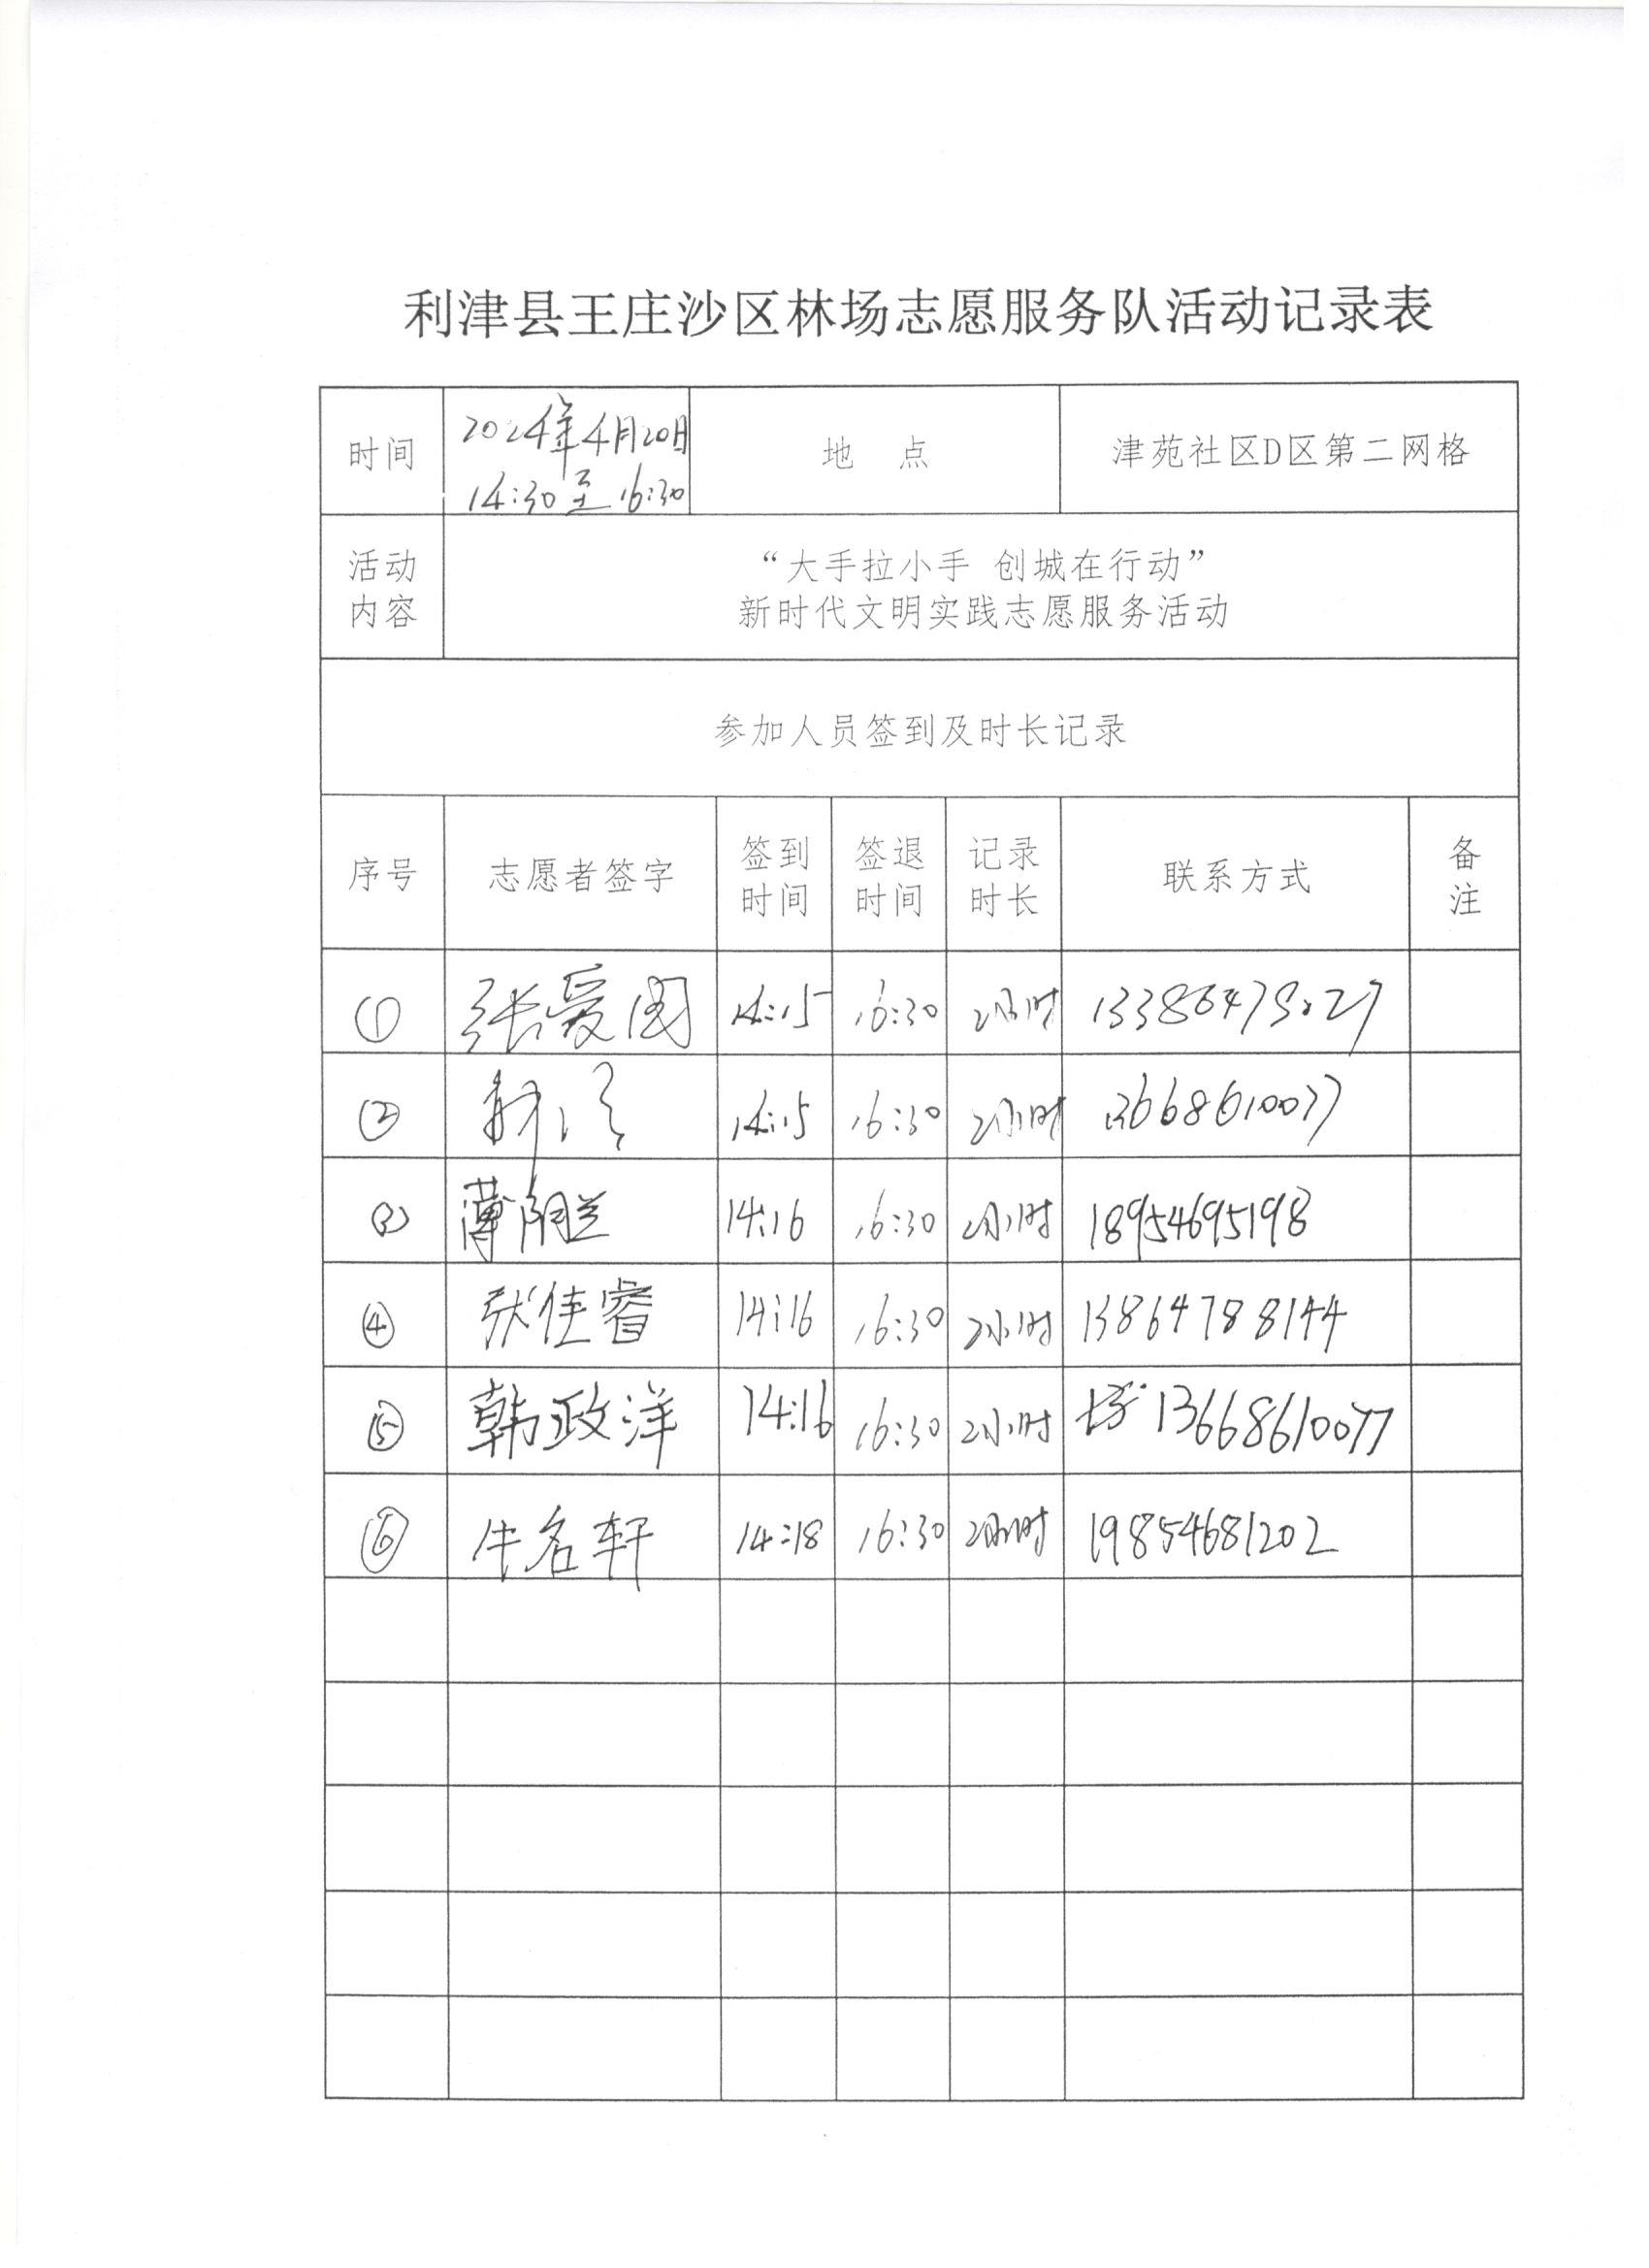 利津县王庄沙区林场志愿服务队活动记录表
时间 2024年4月20日 14:30至16:30 地 点 津苑社区D区第二网格
活动内容 “大手拉小手 创城在行动”
新时代文明实践志愿服务活动
参加人员签到及时长记录
序号 志愿者签字 签到时间 签退时间 记录时长 联系方式 备注
① 张爱国 14:15 16:30 2小时
② 14:15 16:30 2小时 13668610077
③ 薄 14:16 16:30 2小时 18954695198
④ 张佳睿 14:16 16:30 2小时 13864788144
⑤ 韩政洋 14:16 16:30 2小时 13668610077
⑥ 牛名轩 14:18 16:30 2小时 19854681202